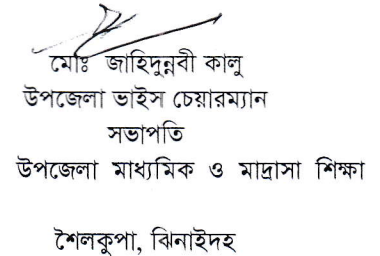 মোঃ জাহিদুন্নবী কালু
উপজেলা ভাইস চেয়ারম্যান
সভাপতি
উপজেলা মাধ্যমিক ও মাদ্রাসা শিক্ষা
শৈলকুপা, ঝিনাইদহ